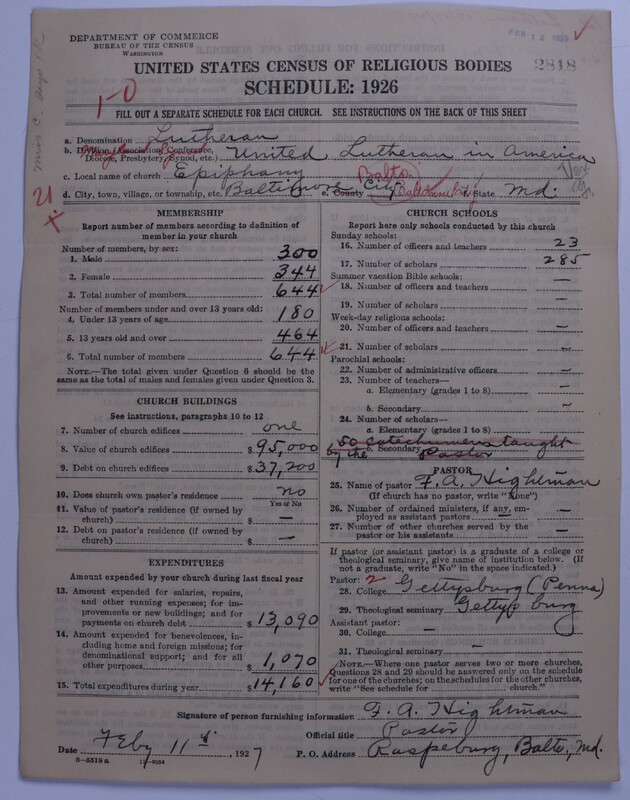 DEPARTMENT OF COMMERCE
BUREAU OF THE CENSUS
WASHINGTON
2818
UNITED STATES CENSUS OF RELIGIOUS BODIES
SCHEDULE: 1926
1-0
FILL OUT A SEPARATE SCHEDULE FOR EACH CHURCH. SEE INSTRUCTIONS ON THE BACK OF THIS SHEET
a. Denomination Lutheran
b. Division (Association, Conference, Diocese, Presbytery, Synod, etc.) United Lutheran in America
c. Local name of church Epiphany
d. City, town, village, or township, etc. Baltimore City e. County Balto. f. State Md.
21
MEMBERSHIP
Report number of members according to definition of member in your church
Number of members, by sex:
1. Male 300
2. Female 344
3. Total number of members 644
Number of members under and over 13 years old:
4. Under 13 years of age 180
5. 13 years old and over 464
6. Total number of members 644
NOTE.—The total given under Question 6 should be the same as the total of males and females given under Question 3.
CHURCH BUILDINGS
See instructions, paragraphs 10 to 12
7. Number of church edifices one
8. Value of church edifices $ 95,000
9. Debt on church edifices $ 37,200
10. Does church own pastor's residence no
Yes or No
11. Value of pastor's residence (if owned by church) $ —
12. Debt on pastor's residence (if owned by church) $ —
EXPENDITURES
Amount expended by your church during last fiscal year
13. Amount expended for salaries, repairs, and other running expenses; for improvements or new buildings; and for payments on church debt $ 13,090
14. Amount expended for benevolences, including home and foreign missions; for denominational support; and for all other purposes $ 1,070
15. Total expenditures during year $ 14,160
CHURCH SCHOOLS
Report here only schools conducted by this church
Sunday schools:
16. Number of officers and teachers 23
17. Number of scholars 285
Summer vacation Bible schools:
18. Number of officers and teachers —
19. Number of scholars —
Week-day religious schools:
20. Number of officers and teachers —
21. Number of scholars —
Parochial schools:
22. Number of administrative officers —
23. Number of teachers—
a. Elementary (grades 1 to 8) —
b. Secondary —
24. Number of scholars—
a. Elementary (grades 1 to 8) —
50 catechumens taught
b. Secondary
by the Pastor
PASTOR
25. Name of pastor F. A. Hightman
(If church has no pastor, write "None")
26. Number of ordained ministers, if any, employed as assistant pastors —
27. Number of other churches served by the pastor or his assistants —
If pastor (or assistant pastor) is a graduate of a college or theological seminary, give name of institution below. (If not a graduate, write "No" in the space indicated.)
Pastor: 2
28. College Gettysburg (Penna)
29. Theological seminary Gettysburg
Assistant pastor:
30. College —
31. Theological seminary —
NOTE.—Where one pastor serves two or more churches, Questions 28 and 29 should be answered only on the schedule for one of the churches; on the schedules for the other churches, write "See schedule for ........ church."
Signature of person furnishing information F. A. Hightman
Official title Pastor
Date Feby 11th, 1927 P. O. Address Raspeburg, Balto., Md.
8—5519a